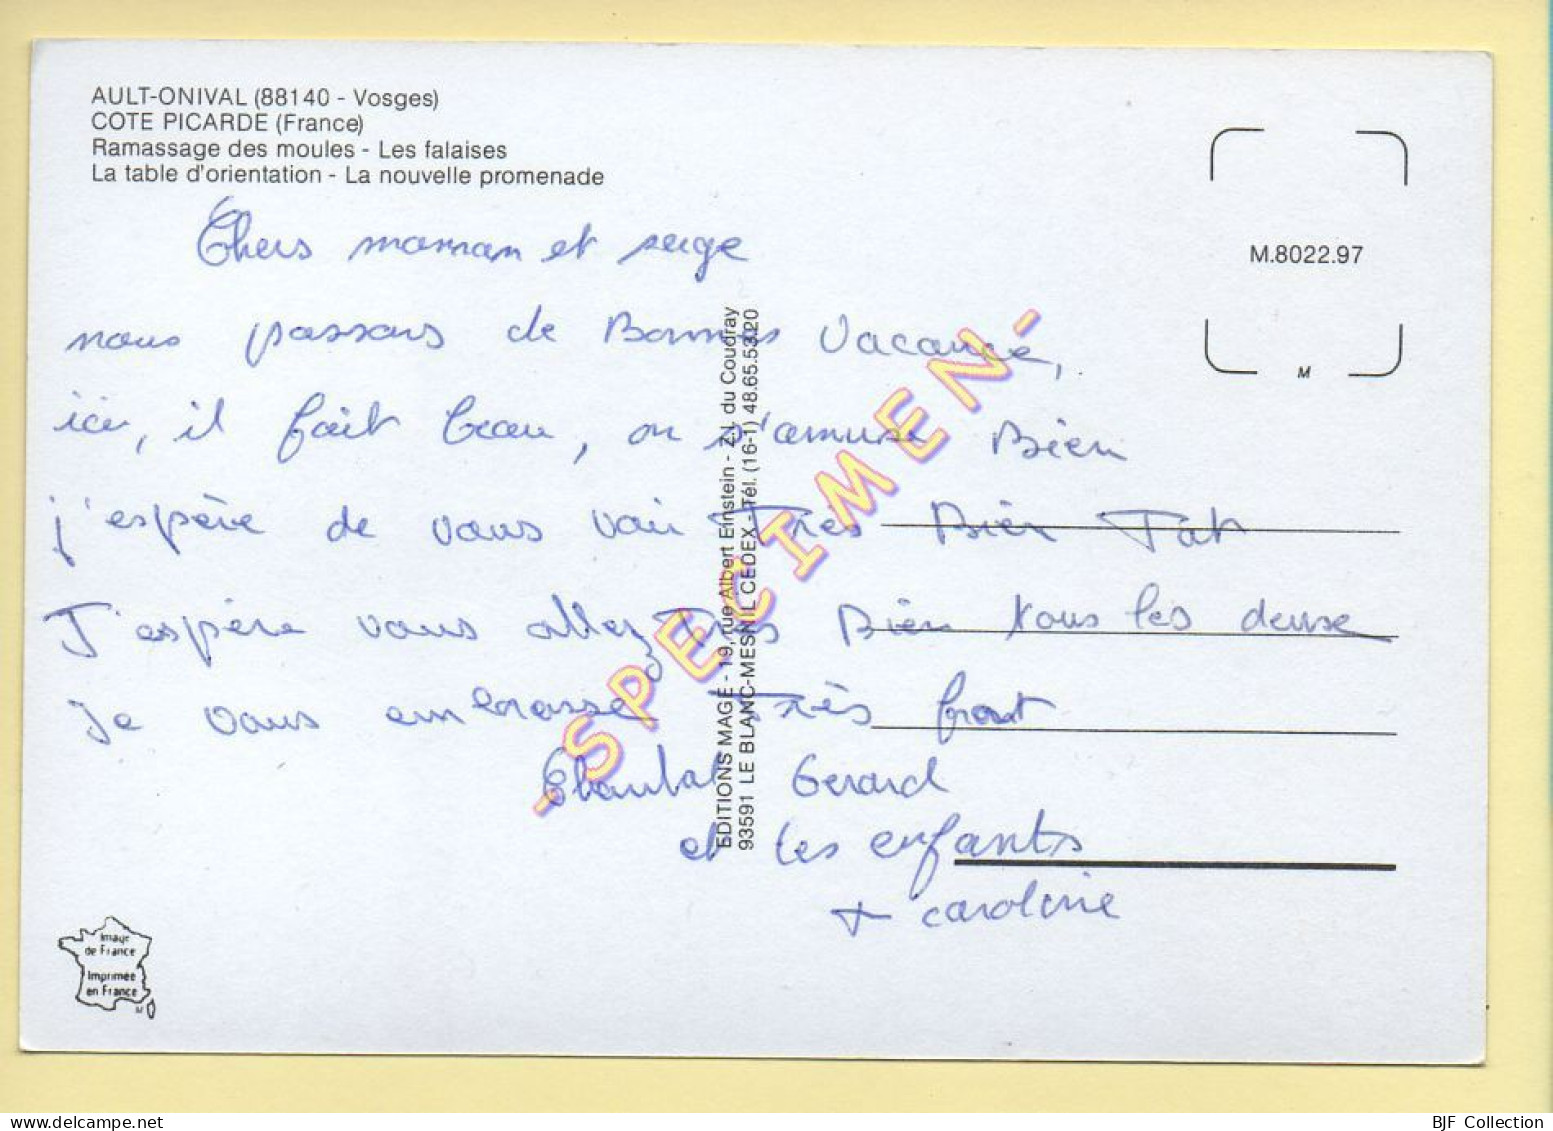 AULT-ONIVAL (88140 - Vosges)
COTE PICARDE (France)
Ramassage des moules - Les falaises
La table d'orientation - La nouvelle promenade
M.8022.97
M
Chers maman et serge
nous passons de Bonnes Vacance,
ici, il fait beau, on s'amuse Bien
j'espère de vous voir Très Bien Tot
J'espère vous allez Très Bien tous les deuse
Je vous embrasse Très fort
Chantal Gerard
et les enfants
+ caroline
EDITIONS MAGE - 19, rue Albert Einstein - Z.I. du Coudray
93591 LE BLANC-MESNIL CEDEX - Tél. (16-1) 48.65.53.20
-SPECIMEN-
Image
de France
Imprimée
en France
M
BJF Collection